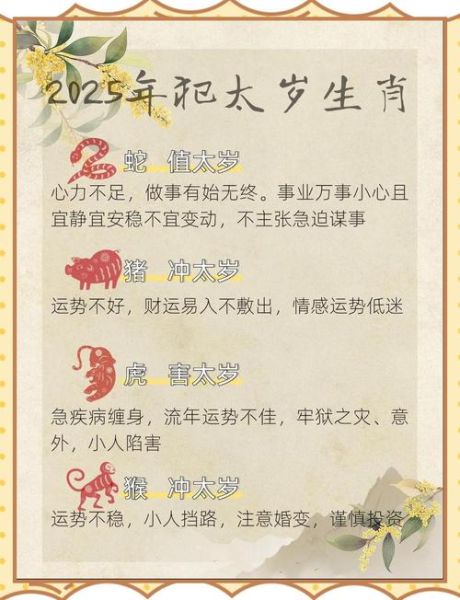 2025年犯太岁生肖
蛇 值太岁
心力不足，做事有始无终。事业万事小心且
宜静宜安稳不宜变动，不主张急迫谋事
猪 冲太岁
运势不好，财运易入不敷出，情感运势低迷
虎 害太岁
急疾病缠身，流年运势不佳，牢狱之灾、意
外，小人陷害
猴 冲太岁
运势不稳，小人挡路，注意婚变，谨慎投资